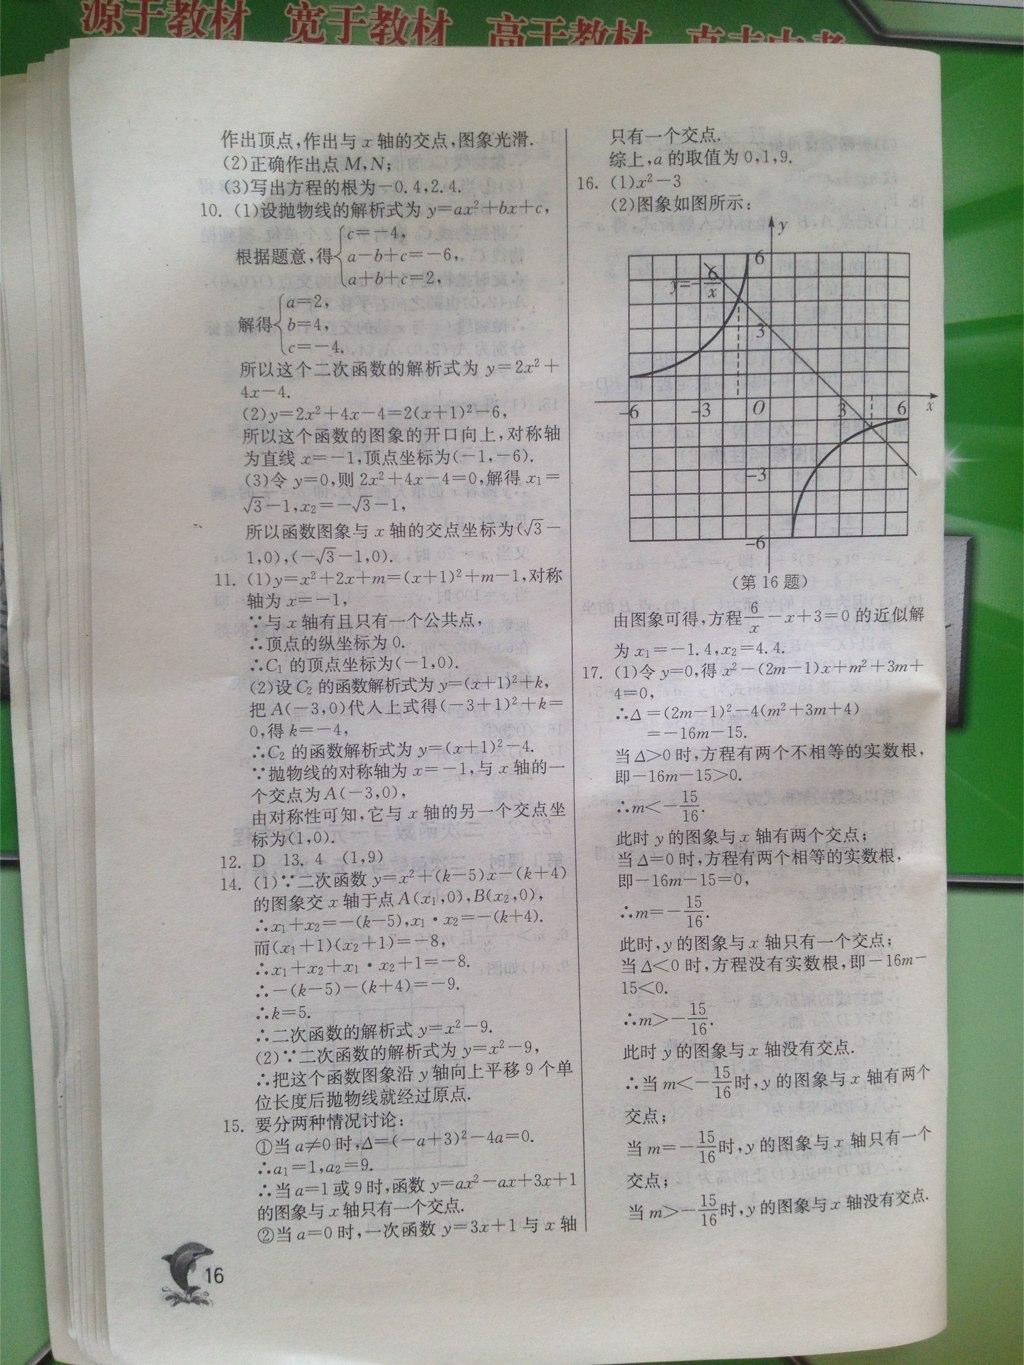 源于教材 宽于教材 高于教材
作出顶点,作出与 x 轴的交点,图象光滑.
(2)正确作出点 M,N;
(3)写出方程的根为-0.4,2.4.
10. (1)设抛物线的解析式为 y=ax²+bx+c,
根据题意,得{c=-4,
a-b+c=-6,
a+b+c=2,
解得{a=2,
b=4,
c=-4.
所以这个二次函数的解析式为 y=2x²+
4x-4.
(2)y=2x²+4x-4=2(x+1)²-6,
所以这个函数的图象的开口向上,对称轴
为直线 x=-1,顶点坐标为(-1,-6).
(3)令 y=0,则 2x²+4x-4=0,解得 x₁=
√3-1,x₂=-√3-1,
所以函数图象与 x 轴的交点坐标为(√3-
1,0),(-√3-1,0).
11. (1)y=x²+2x+m=(x+1)²+m-1,对称
轴为 x=-1,
∵与 x 轴有且只有一个公共点,
∴顶点的纵坐标为 0.
∴C₁ 的顶点坐标为(-1,0).
(2)设 C₂ 的函数解析式为 y=(x+1)²+k,
把 A(-3,0)代入上式得(-3+1)²+k=
0,得 k=-4,
∴C₂ 的函数解析式为 y=(x+1)²-4.
∵抛物线的对称轴为 x=-1,与 x 轴的一
个交点为 A(-3,0),
由对称性可知,它与 x 轴的另一个交点坐
标为(1,0).
12. D 13. 4 (1,9)
14. (1)∵二次函数 y=x²+(k-5)x-(k+4)
的图象交 x 轴于点 A(x₁,0),B(x₂,0),
∴x₁+x₂=-(k-5),x₁·x₂=-(k+4).
而(x₁+1)(x₂+1)=-8,
∴x₁+x₂+x₁·x₂+1=-8.
∴-(k-5)-(k+4)=-9.
∴k=5.
∴二次函数的解析式 y=x²-9.
(2)∵二次函数的解析式为 y=x²-9,
∴把这个函数图象沿 y 轴向上平移 9 个单
位长度后抛物线就经过原点.
15. 要分两种情况讨论:
①当 a≠0 时,Δ=(-a+3)²-4a=0.
∴a₁=1,a₂=9.
∴当 a=1 或 9 时,函数 y=ax²-ax+3x+1
的图象与 x 轴只有一个交点.
②当 a=0 时,一次函数 y=3x+1 与 x 轴
16
只有一个交点.
综上,a 的取值为 0,1,9.
16. (1)x²-3
(2)图象如图所示:
y
6
y=-6/x
3
-6 -3 O 3 6 x
-3
-6
(第 16 题)
由图象可得,方程6/x-x+3=0 的近似解
为 x₁=-1.4,x₂=4.4.
17. (1)令 y=0,得 x²-(2m-1)x+m²+3m+
4=0,
∴Δ=(2m-1)²-4(m²+3m+4)
=-16m-15.
当 Δ>0 时,方程有两个不相等的实数根,
即-16m-15>0.
∴m<-15/16.
此时 y 的图象与 x 轴有两个交点;
当 Δ=0 时,方程有两个相等的实数根,
即-16m-15=0,
∴m=-15/16.
此时,y 的图象与 x 轴只有一个交点;
当 Δ<0 时,方程没有实数根,即-16m-
15<0.
∴m>-15/16.
此时 y 的图象与 x 轴没有交点.
∴当 m<-15/16时,y 的图象与 x 轴有两个
交点;
当 m=-15/16时,y 的图象与 x 轴只有一个
交点;
当 m>-15/16时,y 的图象与 x 轴没有交点.